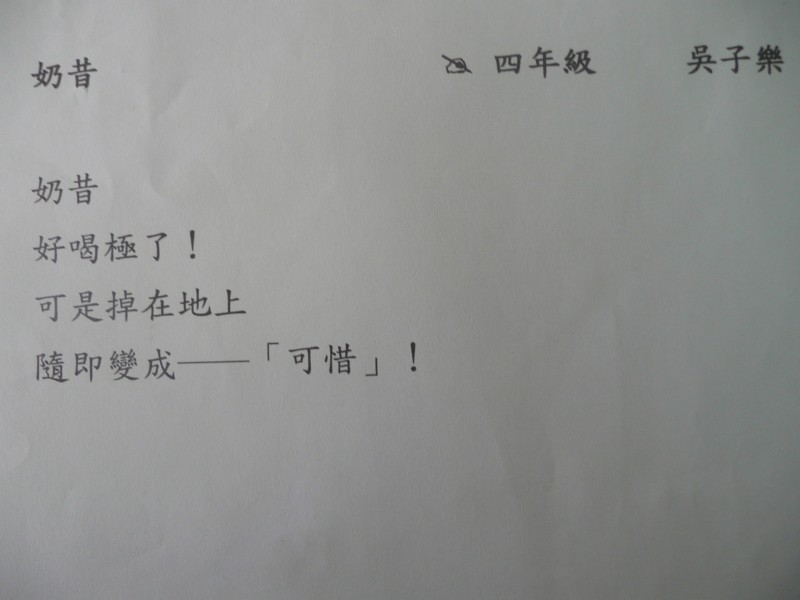 奶昔 四年級 吳子樂
奶昔
好喝極了！
可是掉在地上
隨即變成——「可惜」！